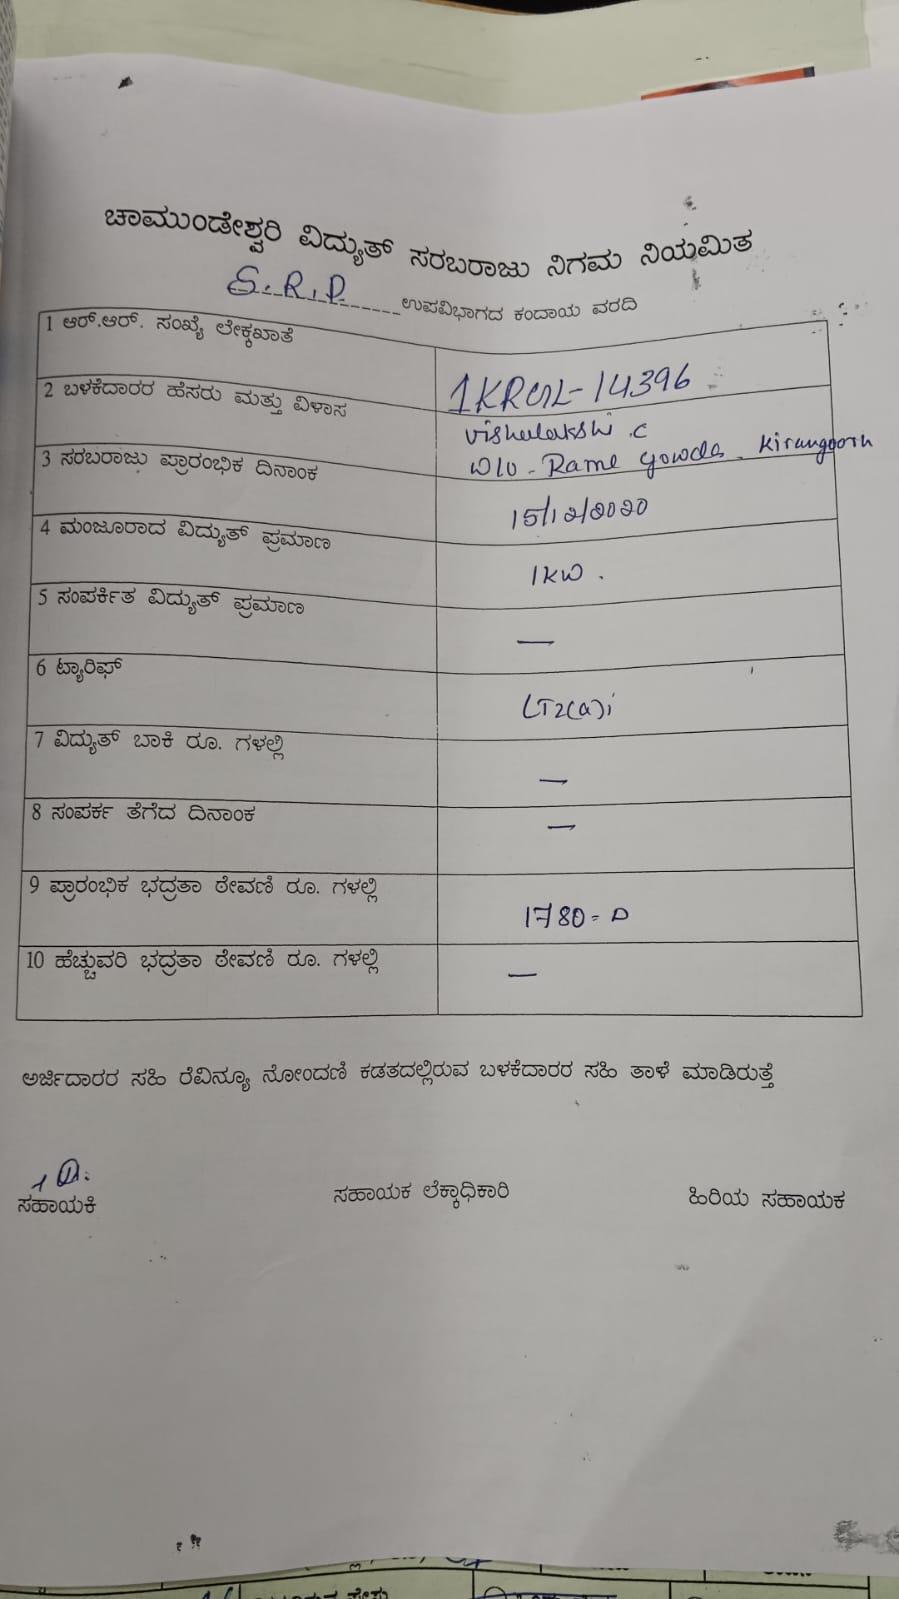 ಚಾಮುಂಡೇಶ್ವರಿ ವಿದ್ಯುತ್ ಸರಬರಾಜು ನಿಗಮ ನಿಯಮಿತ
S.R.P ಉಪವಿಭಾಗದ ಕಂದಾಯ ವರದಿ
1 ಆರ್.ಆರ್. ಸಂಖ್ಯೆ ಲೇಕ್ಕಖಾತೆ
1KRGL-14396
2 ಬಳಕೆದಾರರ ಹೆಸರು ಮತ್ತು ವಿಳಾಸ
vishalakshi .c
W/o - Rame Gowda. Kirangoor
3 ಸರಬರಾಜು ಪ್ರಾರಂಭಿಕ ದಿನಾಂಕ
15/12/2020
4 ಮಂಜೂರಾದ ವಿದ್ಯುತ್ ಪ್ರಮಾಣ
1KW .
5 ಸಂಪರ್ಕಿತ ವಿದ್ಯುತ್ ಪ್ರಮಾಣ
—
6 ಟ್ಯಾರಿಫ್
LT2(a)i
7 ವಿದ್ಯುತ್ ಬಾಕಿ ರೂ. ಗಳಲ್ಲಿ
—
8 ಸಂಪರ್ಕ ತೆಗೆದ ದಿನಾಂಕ
—
9 ಪ್ರಾರಂಭಿಕ ಭದ್ರತಾ ಠೇವಣಿ ರೂ. ಗಳಲ್ಲಿ
1780=0
10 ಹೆಚ್ಚುವರಿ ಭದ್ರತಾ ಠೇವಣಿ ರೂ. ಗಳಲ್ಲಿ
—
ಅರ್ಜಿದಾರರ ಸಹಿ ರೆವಿನ್ಯೂ ನೋಂದಣಿ ಕಡತದಲ್ಲಿರುವ ಬಳಕೆದಾರರ ಸಹಿ ತಾಳೆ ಮಾಡಿರುತ್ತೆ
ಸಹಾಯಕಿ ಸಹಾಯಕ ಲೆಕ್ಕಾಧಿಕಾರಿ ಹಿರಿಯ ಸಹಾಯಕ